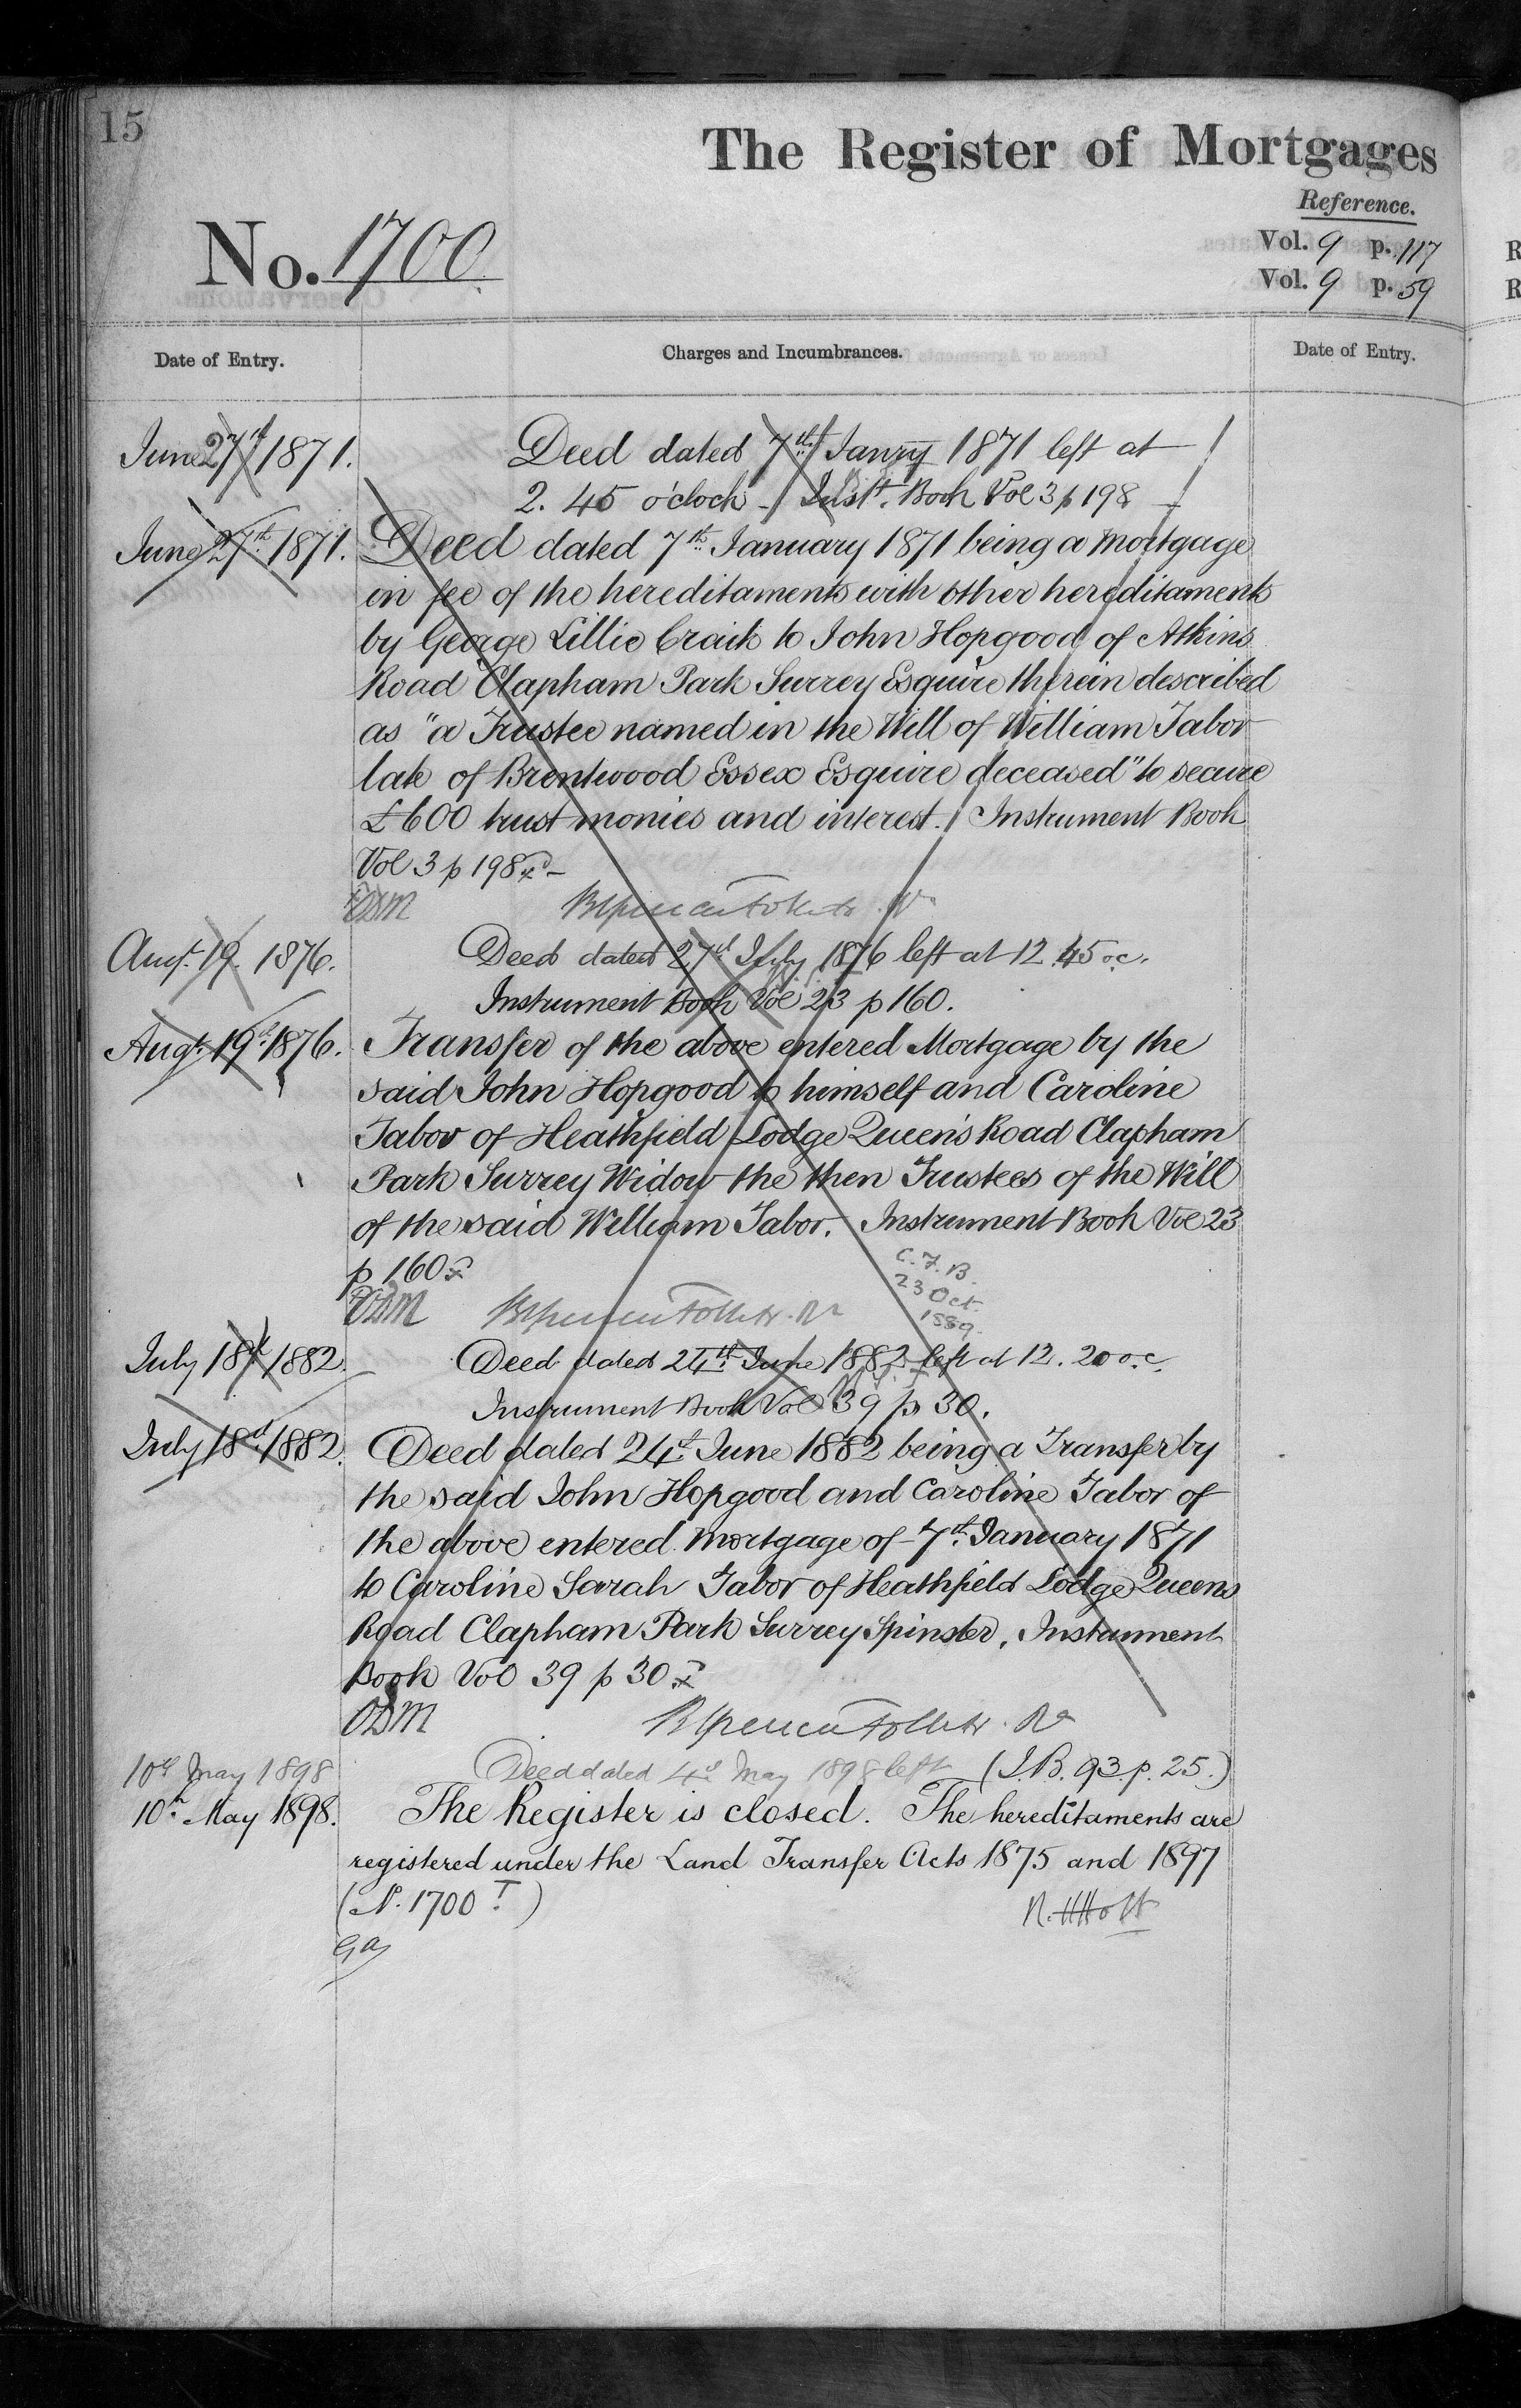 15
The Register of Mortgages
Reference.
No. 1700.
Vol. 9 p. 117
Vol. 9 p. 59
Date of Entry.
Charges and Incumbrances.
Date of Entry.
June 27th 1871. Deed dated 7th Janry 1871 left at
2. 45 o'clock - Inst. Book Vol 3 p 198
June 27th 1871. Deed dated 7th January 1871 being a Mortgage
in fee of the hereditaments with other hereditaments
by George Lillie Craik to John Hopgood of Atkins
Road Clapham Park Surrey Esquire therein described
as "a Trustee named in the Will of William Tabor
late of Brentwood Essex Esquire deceased" to secure
£600 trust monies and interest. Instrument Book
Vol 3 p 198
Augt. 19. 1876. Deed dated 27th July 1876 left at 12.45 oc.
Instrument Book Vol 23 p 160.
Augt. 19th 1876. Transfer of the above entered Mortgage by the
said John Hopgood to himself and Caroline
Tabor of Heathfield Lodge Queen's Road Clapham
Park Surrey Widow the then Trustees of the Will
of the said William Tabor. Instrument Book Vol 23
p 160
C.F.B.
23 Oct.
1889.
July 18th 1882. Deed dated 24th June 1882 left at 12. 20 o.c.
Instrument Book Vol 39 p 30.
July 18th 1882. Deed dated 24th June 1882 being a Transfer by
the said John Hopgood and Caroline Tabor of
the above entered Mortgage of 7th January 1871
to Caroline Sarah Tabor of Heathfield Lodge Queens
Road Clapham Park Surrey Spinster. Instrument
Book Vol 39 p 30
10th May 1898 Deed dated 4th May 1898 left (I.B. 93 p. 25.)
10th May 1898. The Register is closed. The hereditaments are
registered under the Land Transfer Acts 1875 and 1897
(No. 1700 T)